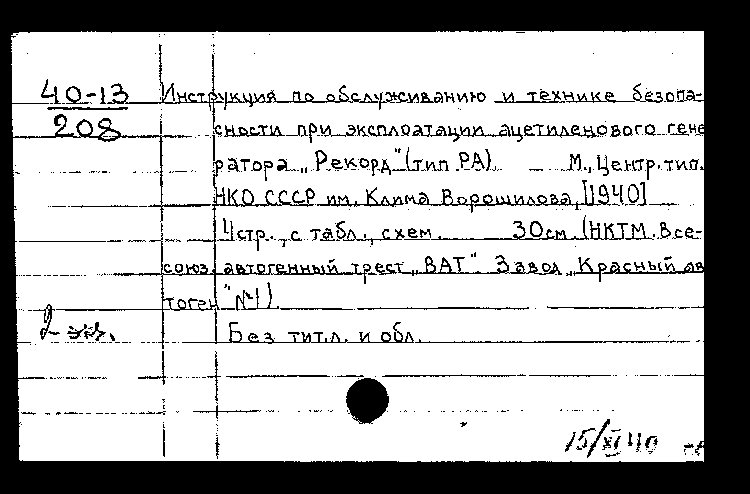 40-13
208
Инструкция по обслуживанию и технике безопа-
сности при эксплоатации ацетиленового гене
ратора „Рекорд" (тип РА) М., Центр. тип.
НКО СССР им. Клима Ворошилова, [1940]
4 стр., с табл., схем. 30 см. (НКТМ. Все-
союз. автогенный трест „ВАТ". Завод „Красный ав
тоген" №1).
2 экз.
Без тит.л. и обл.
15/XI 40